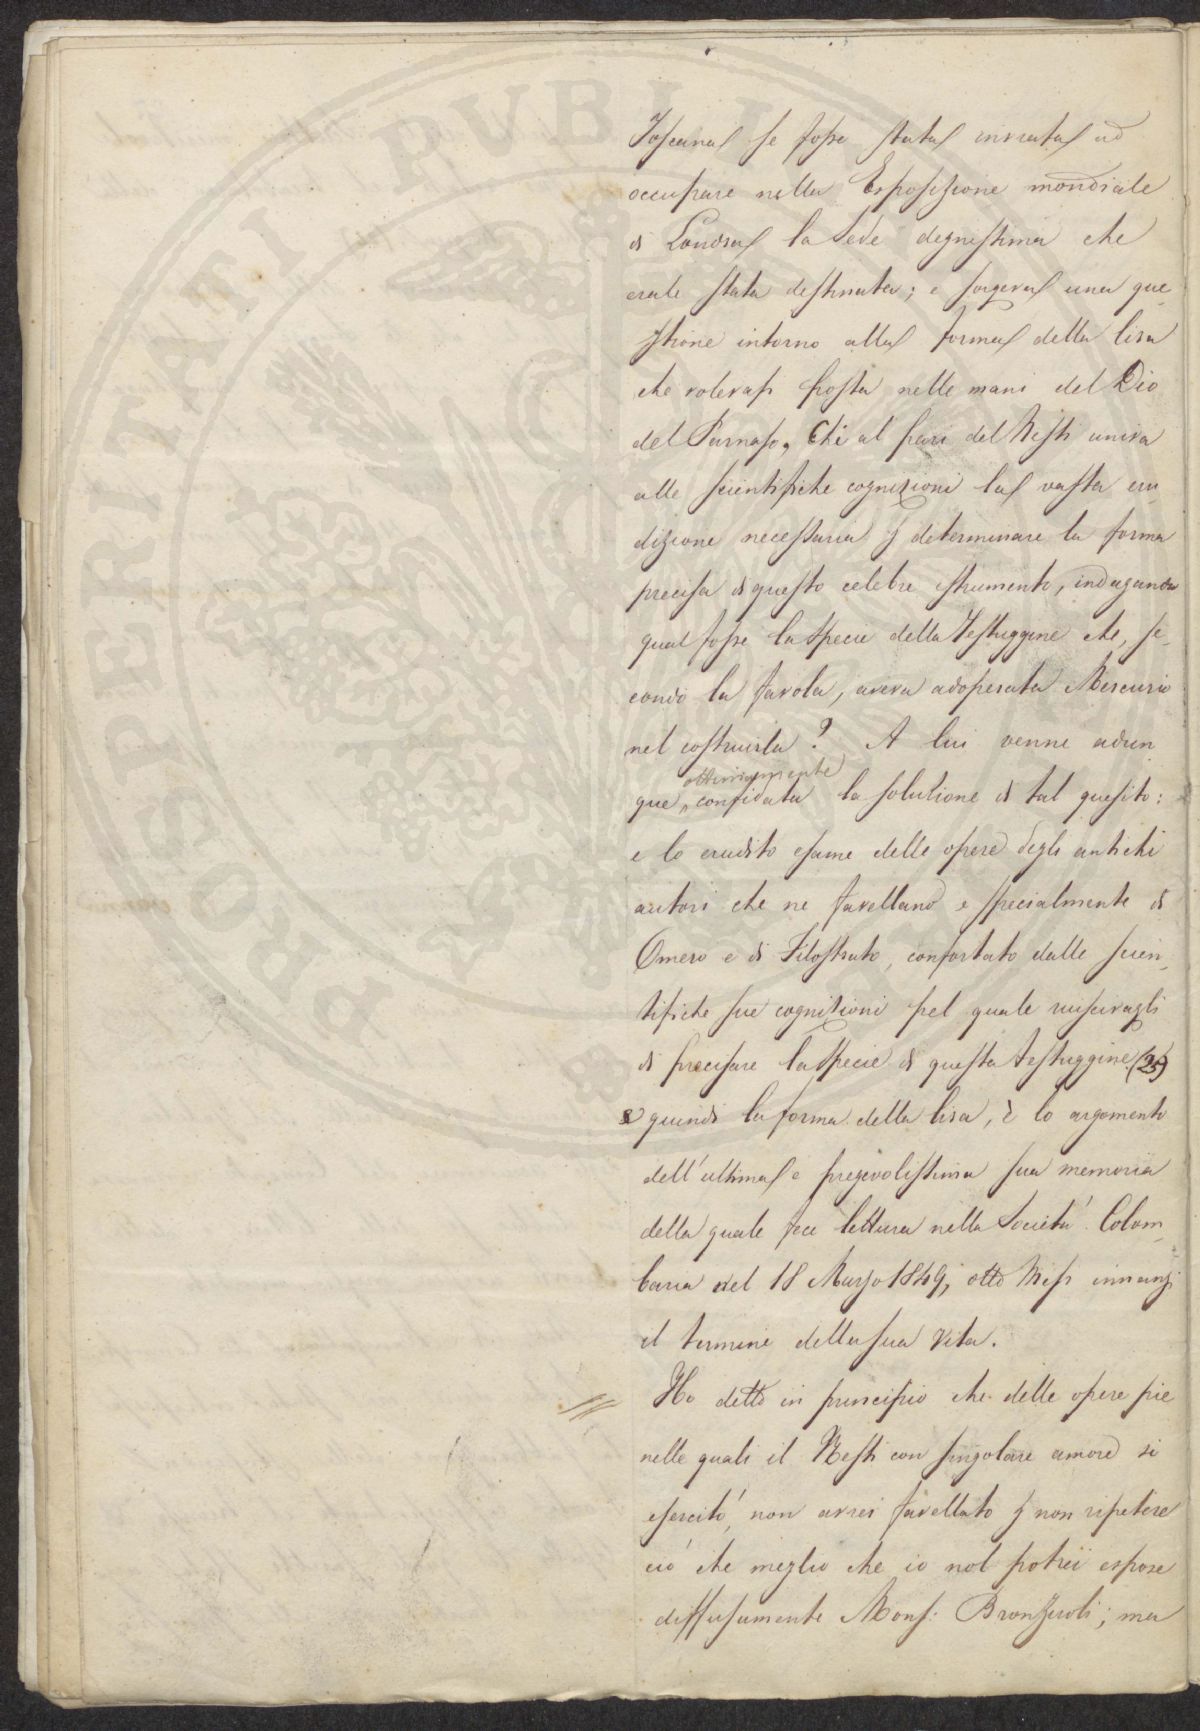 Toscana se fosse stata inviata ad
occupare nella Esposizione mondiale
di Londra la sede degnissima che
erale stata destinata; e sorgeva una que-
stione intorno alla forma della lira
che volevasi posta nelle mani del Dio
del Parnaso. Chi al pari del Nesti univa
alle scientifiche cognizioni la vasta eru
dizione necessaria p determinare la forma
precisa di questo celebre istrumento, indagando
qual fosse la specie della Testuggine che, se-
condo la favola, aveva adoperata Mercurio
nel costruirla? A lui venne adun
ottimamente
que confidata la soluzione di tal quesito:
e lo erudito esame delle opere degli antichi
autori che ne favellano e specialmente di
Omero e di Filostrato, confortato dalle scien-
tifiche sue cognizioni pel quale riuscivagli
di precisare la specie di questa testuggine (25)
e quindi la forma della lira, è lo argomento
dell'ultima e pregevolissima sua memoria
della quale fece lettura nella Società Colom-
baria del 18 Marzo 1849, otto Mesi innanzi
il termine della sua vita.
Ho detto in principio che delle opere pie
nelle quali il Nesti con singolare amore si
esercitò, non avrei favellato p non ripetere
ciò che meglio che io nol potrei espose
diffusamente Mons: Bronzuoli; ma
PVBLI